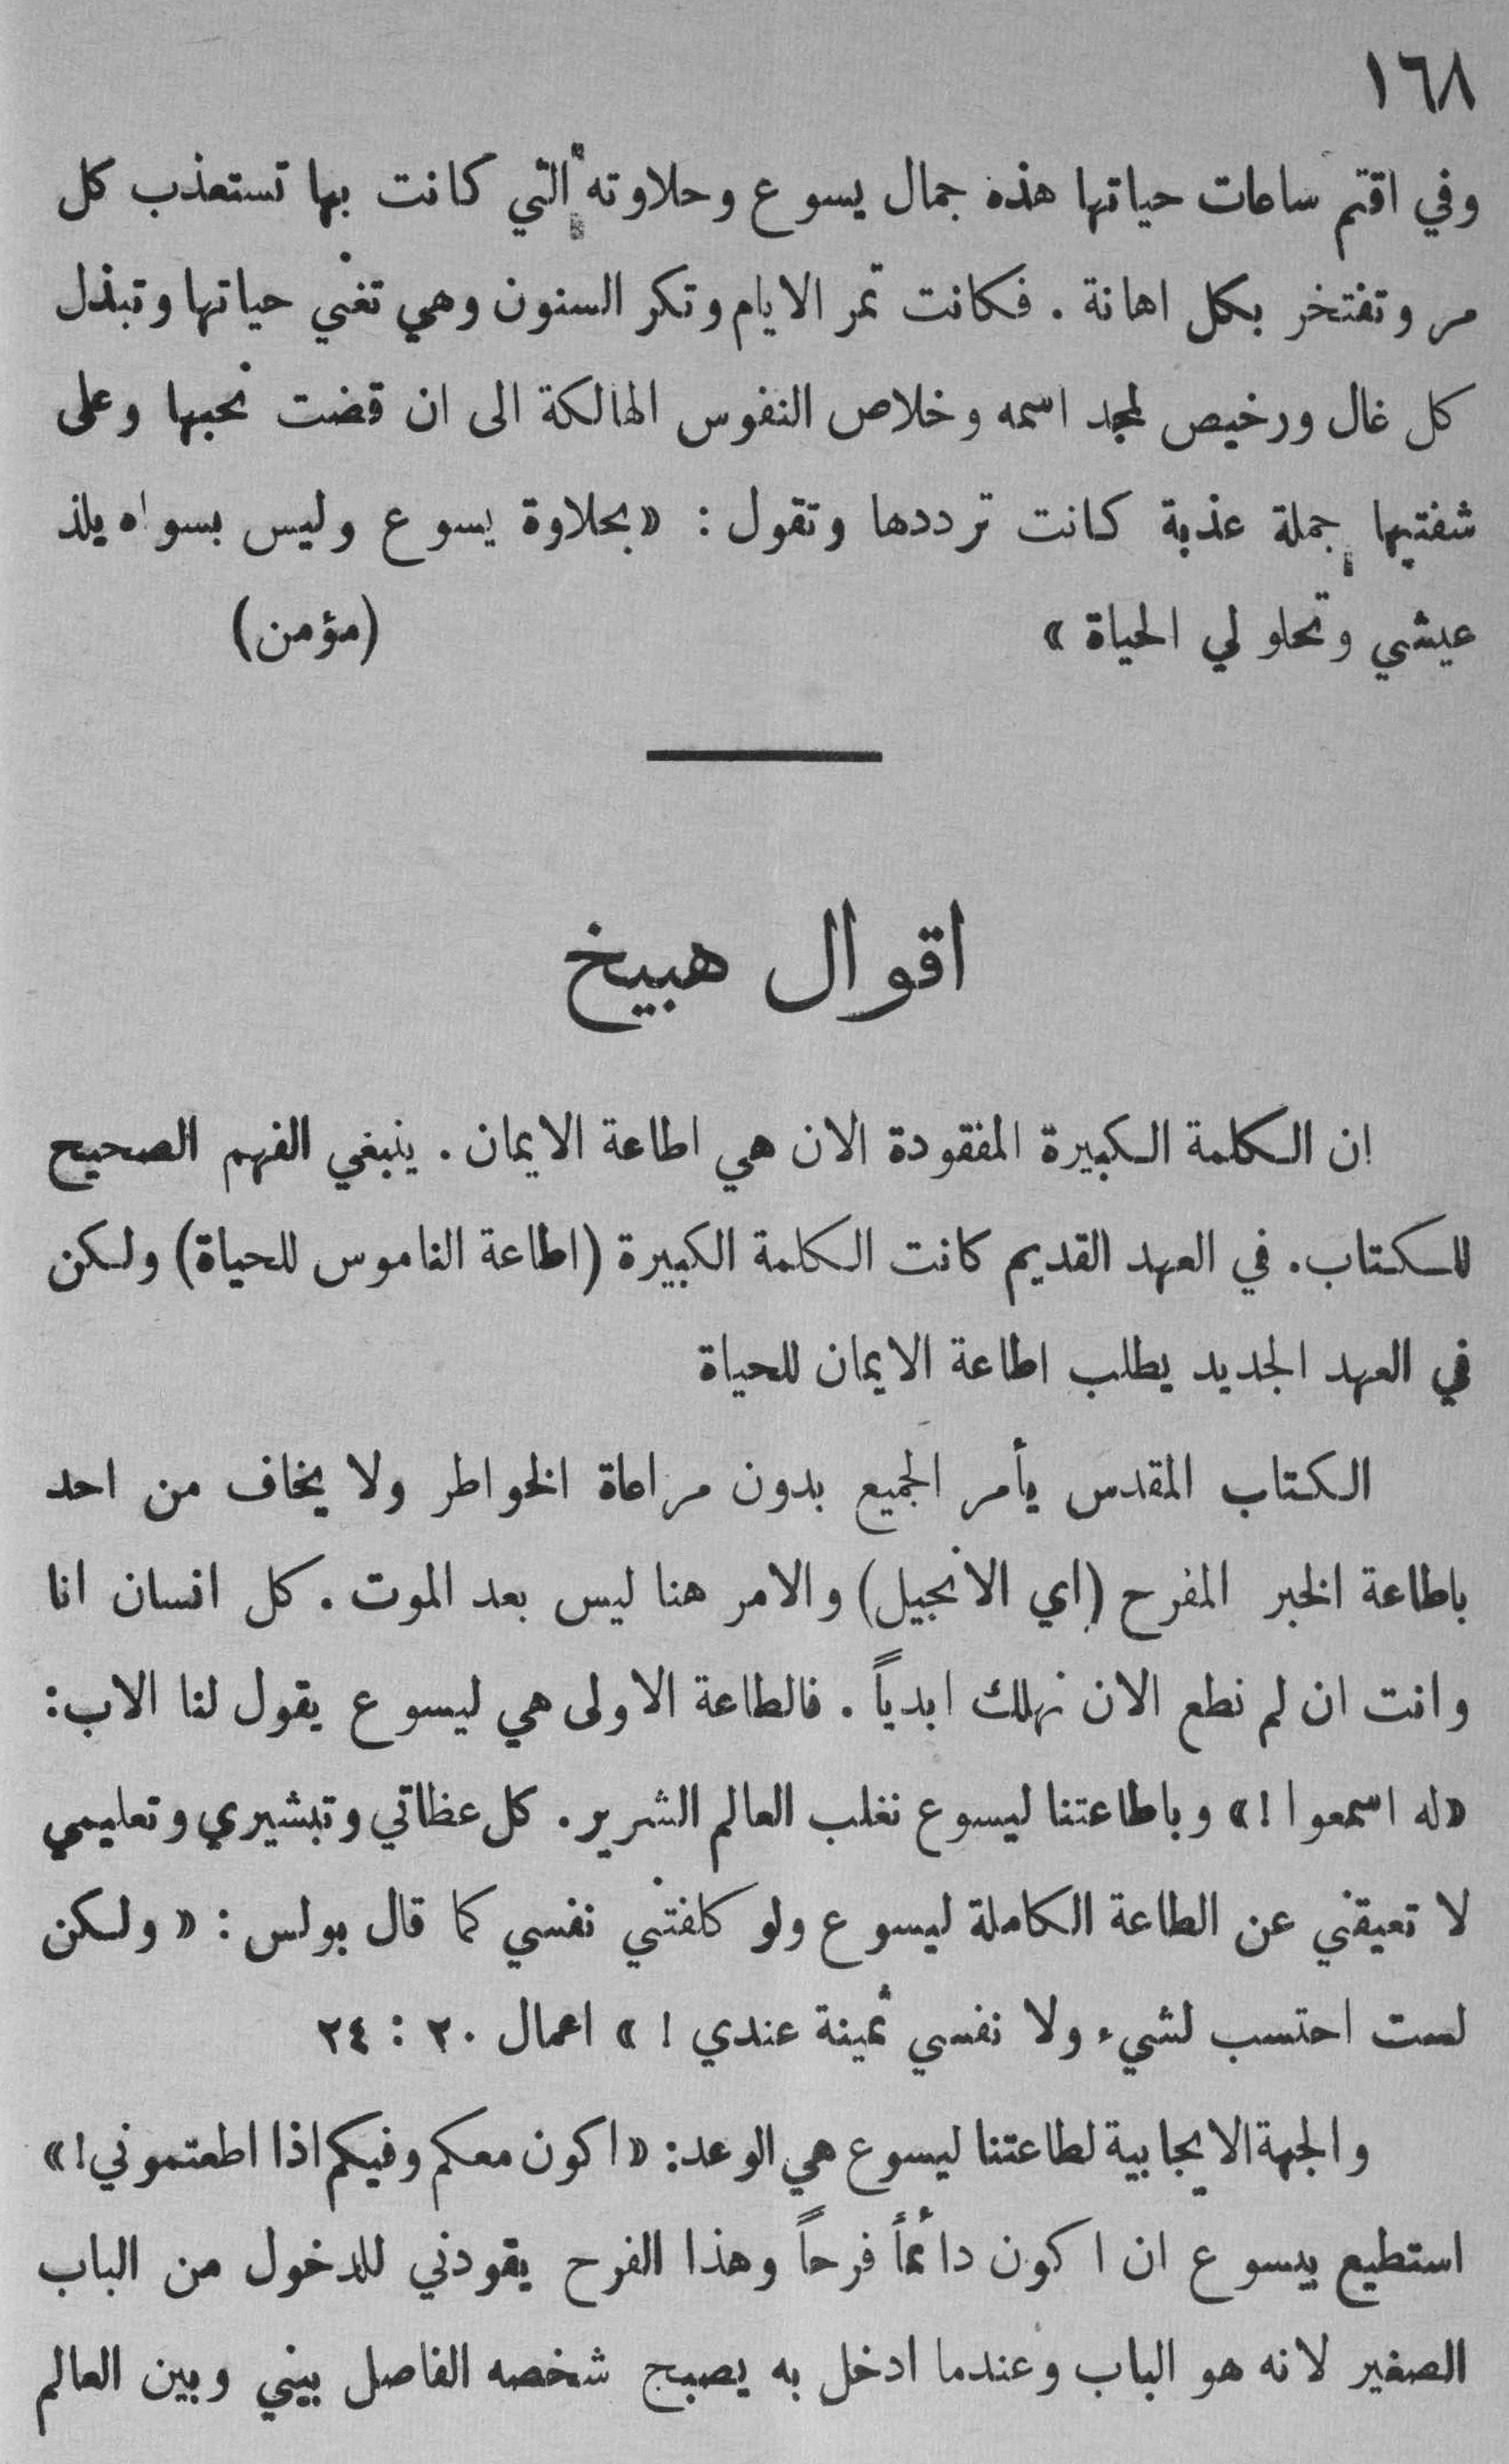 ١٦٨
وفي اقتم ساعات حياتها هذه جمال يسوع وحلاوته التي كانت بها تستعذب كل
مر وتفتخر بكل اهانة . فكانت تمر الايام وتكر السنون وهي تفني حياتها وتبذل
كل غال ورخيص لمجد اسمه وخلاص النفوس الهالكة الى ان قضت نحبها وعلى
شفتيها جملة عذبة كانت ترددها وتقول : «بحلاوة يسوع وليس بسواه يلذ
عيشي وتحلو لي الحياة » (مؤمن)
اقوال هبيخ
ان الكلمة الكبيرة المفقودة الان هي اطاعة الايمان . ينبغي الفهم الصحيح
للكتاب . في العهد القديم كانت الكلمة الكبيرة (اطاعة الناموس للحياة) ولكن
في العهد الجديد يطلب اطاعة الايمان للحياة
الكتاب المقدس يأمر الجميع بدون مراعاة الخواطر ولا يخاف من احد
باطاعة الخبر المفرح (اي الانجيل) والامر هنا ليس بعد الموت . كل انسان انا
وانت ان لم نطع الان نهلك ابدياً . فالطاعة الاولى هي ليسوع يقول لنا الاب :
«له اسمعوا ! » وباطاعتنا ليسوع نغلب العالم الشرير . كل عظاتي وتبشيري وتعليمي
لا تعيقني عن الطاعة الكاملة ليسوع ولو كلفتني نفسي كما قال بولس : « ولكن
لست احتسب لشيء ولا نفسي ثمينة عندي ! » اعمال ٢٠ : ٢٤
والجهة الايجابية لطاعتنا ليسوع هي الوعد : «اكون معكم وفيكم اذا اطعتموني ! »
استطيع بيسوع ان اكون دائماً فرحاً وهذا الفرح يقودني للدخول من الباب
الصغير لانه هو الباب وعندما ادخل به يصبح شخصه الفاصل بيني وبين العالم